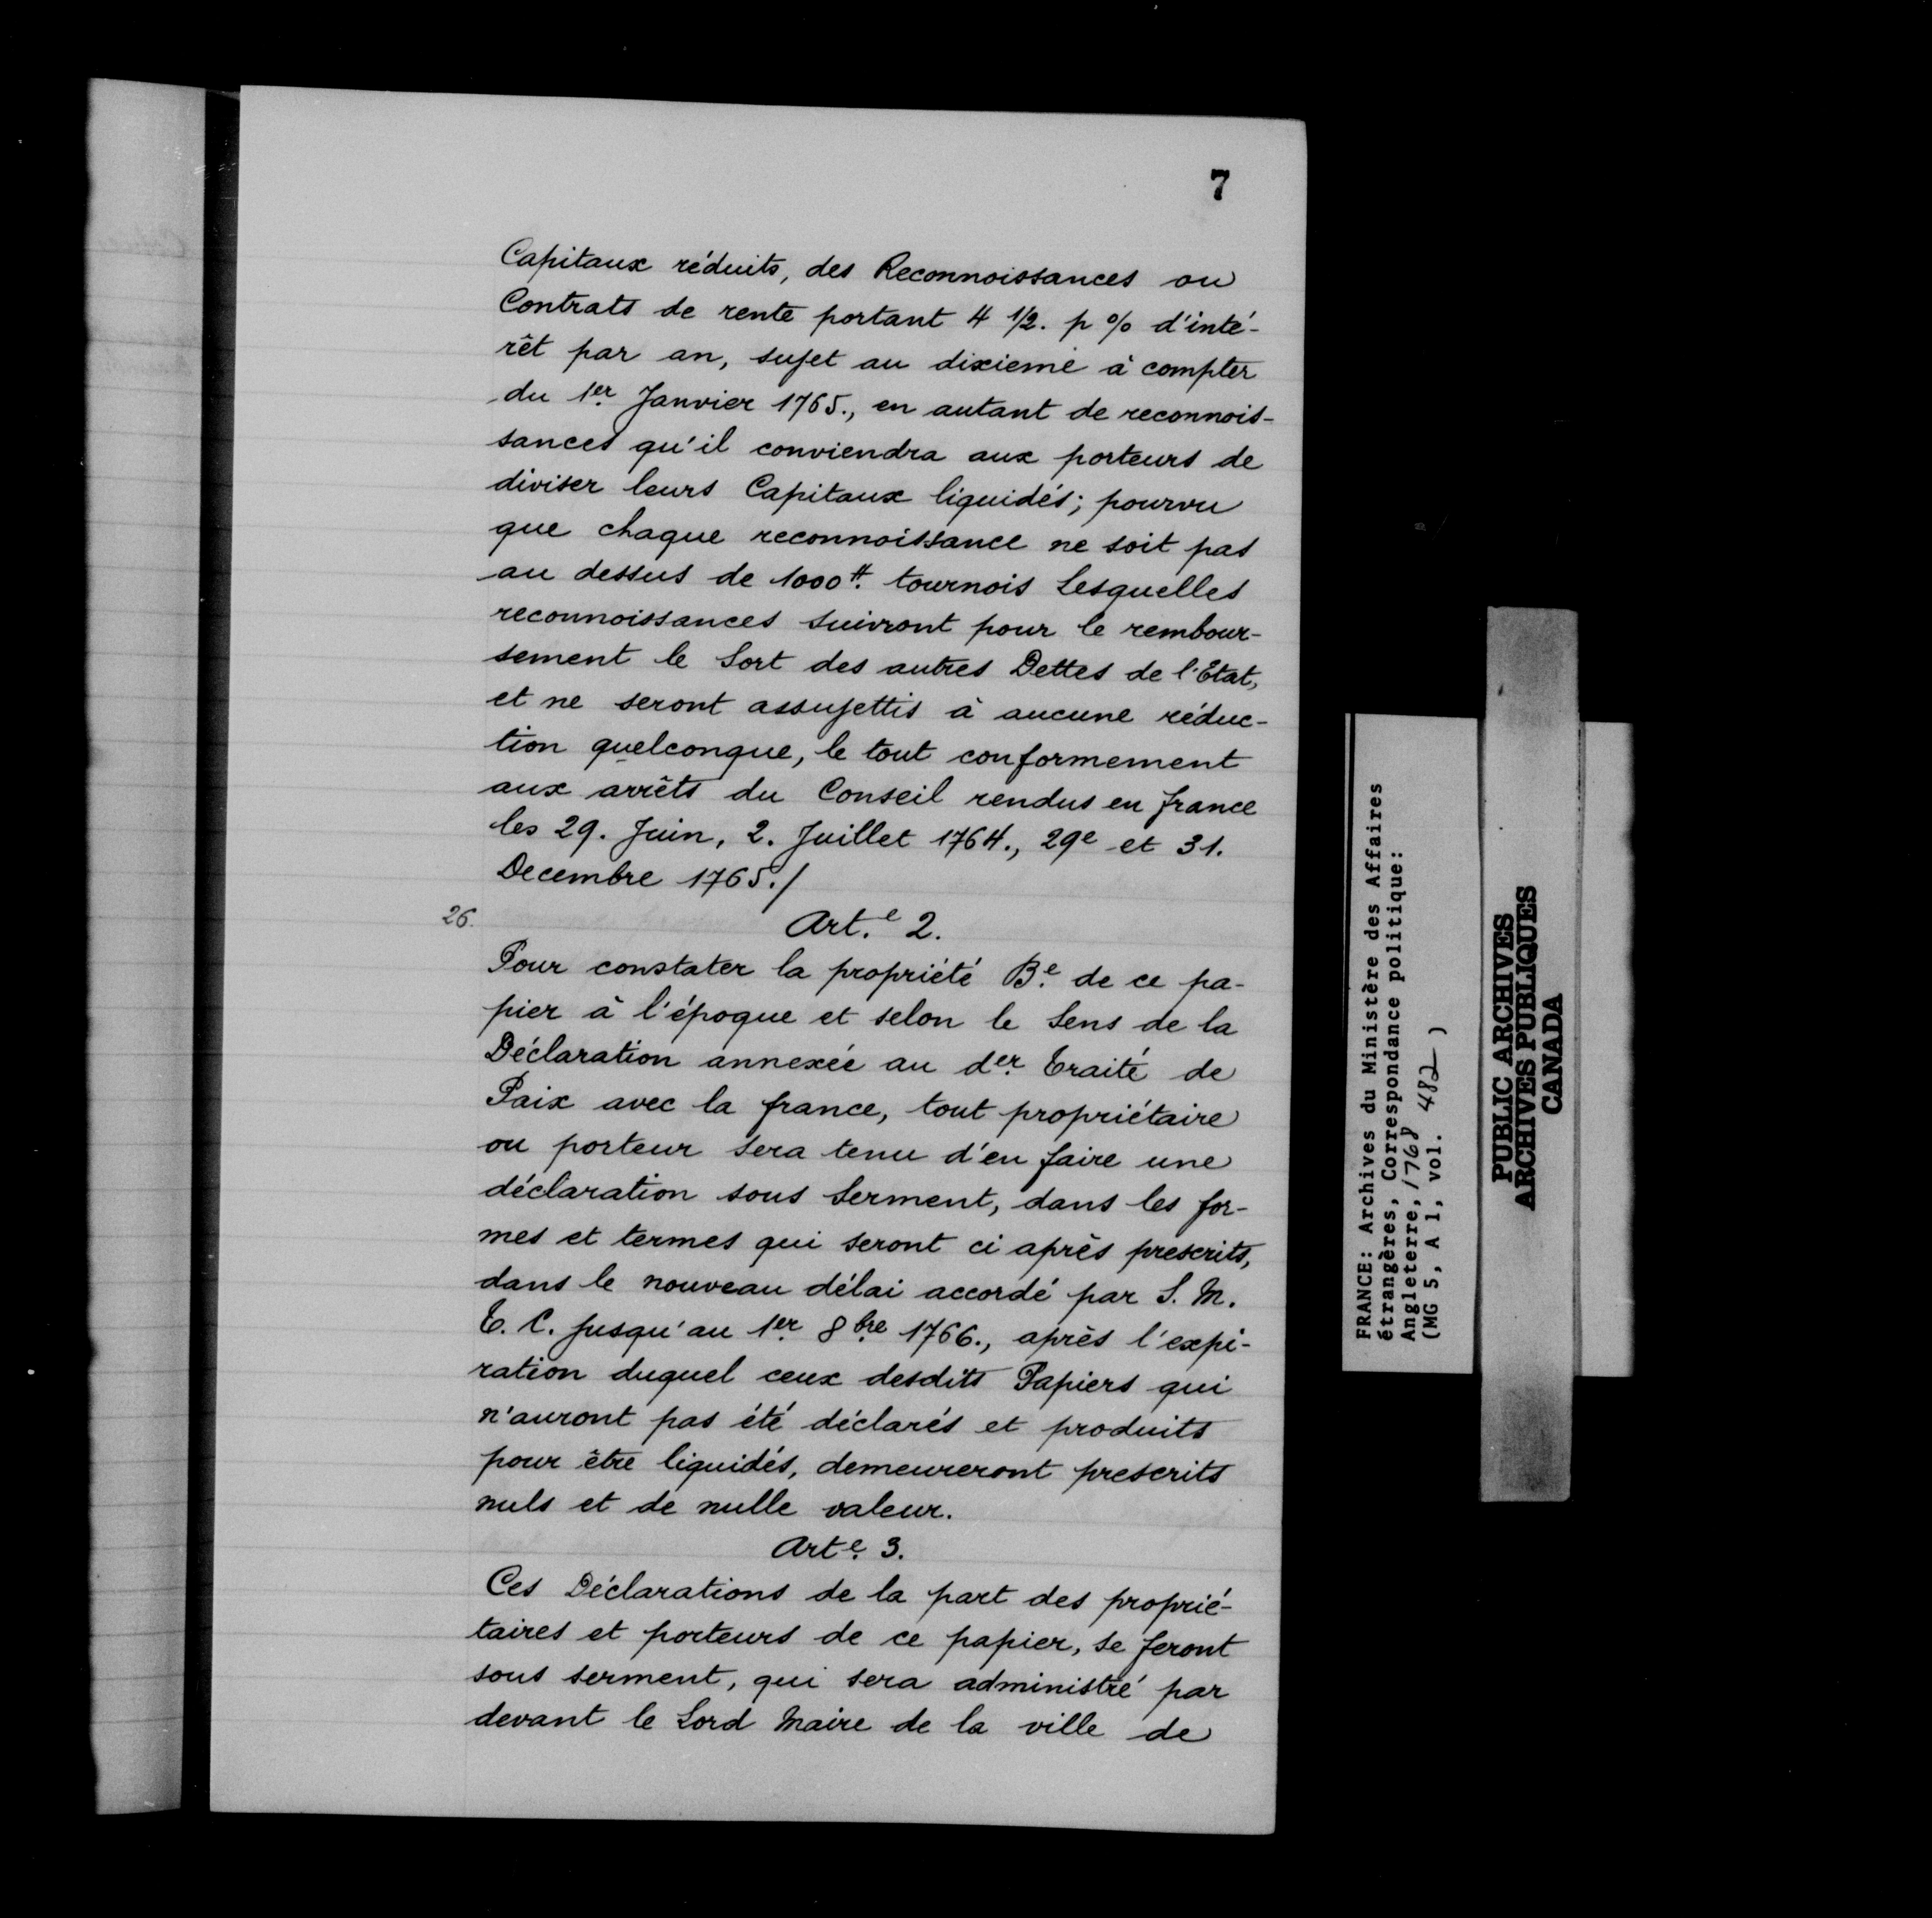 7
Capitaux réduits, des Reconnoissances ou
Contrats de rente portant 4 1/2. p % d'inté-
rêt par an, sujet au dixieme à compter
du 1er Janvier 1765., en autant de reconnois-
sances qu'il conviendra aux porteurs de
diviser leurs Capitaux liquidés; pourvu
que chaque reconnoissance ne soit pas
au dessus de 1000 ₶. tournois Lesquelles
reconnoissances suivront pour le rembour-
sement le Sort des autres Dettes de l'Etat,
et ne seront assujettis à aucune réduc-
tion quelconque, le tout conformement
aux arrêts du Conseil rendus en france
les 29. Juin, 2. Juillet 1764., 29e et 31.
Decembre 1765./
26.
Art.e 2.
Pour constater la propriété B.e de ce pa-
pier à l'époque et selon le Sens de la
Déclaration annexée au der Traité de
Paix avec la france, tout propriétaire
ou porteur sera tenu d'en faire une
déclaration sous Serment, dans les for-
mes et termes qui seront ci après prescrits,
dans le nouveau délai accordé par S. M.
T. C. jusqu'au 1er 8bre 1766., après l'expi-
ration duquel ceux desdits Papiers qui
n'auront pas été déclarés et produits
pour être liquidés, demeureront prescrits
nuls et de nulle valeur.
Arte. 3.
Ces Déclarations de la part des proprié-
taires et porteurs de ce papier, se feront
sous serment, qui sera administré par
devant le Lord Maire de la ville de
FRANCE: Archives du Ministère des Affaires
étrangères, Correspondance politique:
Angleterre, 1768
(MG 5, A 1, vol. 482 )
PUBLIC ARCHIVES
ARCHIVES PUBLIQUES
CANADA